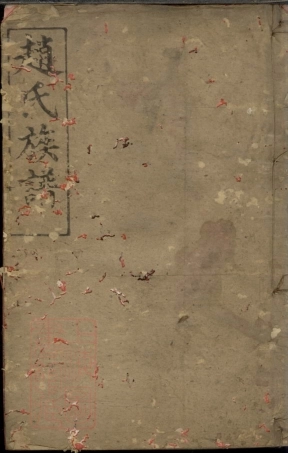 趙氏族譜